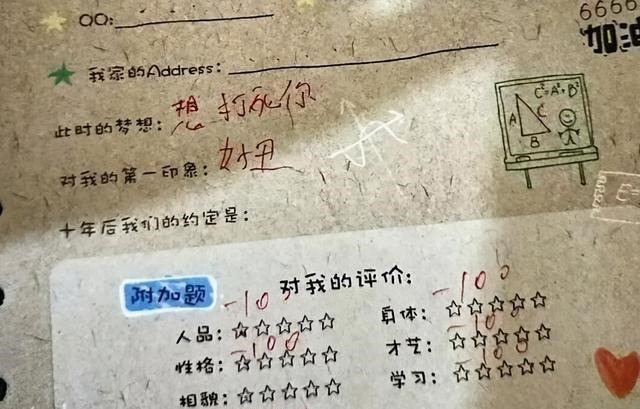 6666
QQ:
加油
我家的Address:
此时的梦想: 想打死你
C²=A²+B²
A C
B
对我的第一印象: 好丑
十年后我们的约定是:
附加题 对我的评价:
人品: -100 身体: -100
性格: -100 才艺: -100
相貌: 学习: -100